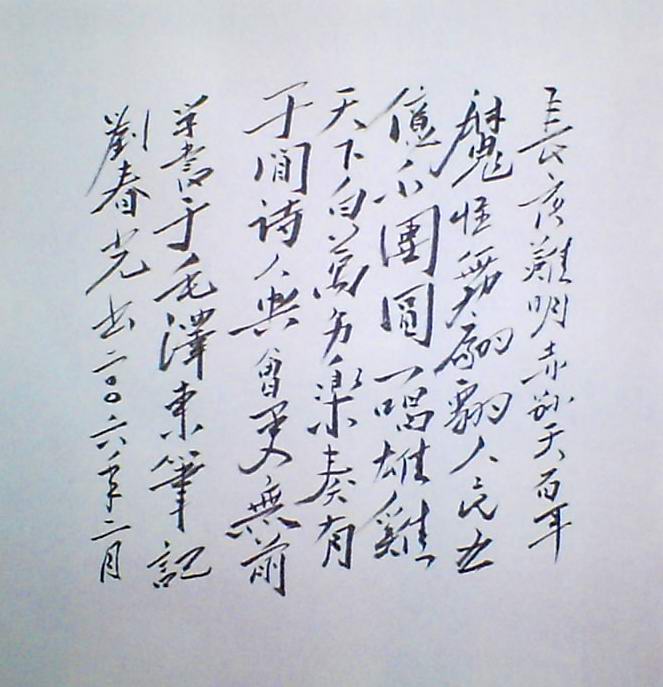 長夜難明赤縣天百年
魔怪舞翩翩人民五
億不團圓一唱雄雞
天下白萬方樂奏有
于間詩人興會更無前
学書于毛澤東筆記
劉春光书二〇〇六年二月